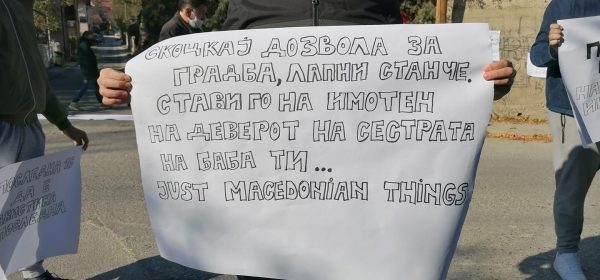 СКОЦКАЈ ДОЗВОЛА ЗА
ГРАДБА, ЛАПНИ СТАНЧЕ.
СТАВИ ГО НА ИМОТЕН
НА ДЕВЕРОТ НА СЕСТРАТА
НА БАБА ТИ...
JUST MACEDONIAN THINGS
ДА Е